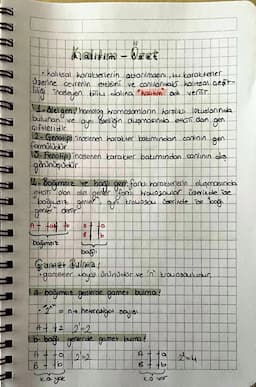 Kalıtım - Özet
• Kalıtsal karakterlerin aktarılmasını, bu karakterler
üzerine çevrenin etkisini ve canlılardaki kalıtsal çeşit-
liliği inceleyen bilim dalına "kalıtım" adı verilir.
1- Alel gen: Homolog kromozomların karşılıklı lokuslarında
bulunan ve aynı özelliğin oluşmasında etkili olan gen
çiftleridir.
2- Genotip: İncelenen karakter bakımından canlının gen
formülüdür.
3- Fenotip: İncelenen karakter bakımından canlının dış
görünüşüdür.
4- Bağımsız ve bağlı gen: farklı karakterlerin oluşmasında
etkili olan alel genler farklı kromozom üzerinde ise
"bağımsız genler", aynı kromozom üzerinde ise "bağlı
genler" denir.
bağımsız
bağlı
Gamet Bulma:
• gametler mayozla ürünüdür ve "n" kromozomludur.
a- bağımsız genlerde gamet bulma:
n → heterozigot sayısı
b- bağlı genlerde gamet bulma:
A a
B b
k.o yok
A a
B b
k.o var